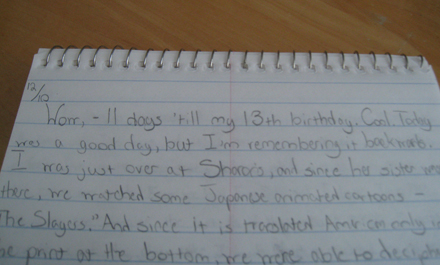 12/10
Wow, - 11 days 'till my 13th birthday. Cool. Today
was a good day, but I'm remembering it backwards.
I was just over at Sharo's, and since her sister was
there, we watched some Japanese animated cartoons -
The Slayers." And since it is translated American only in
the print at the bottom, we were able to